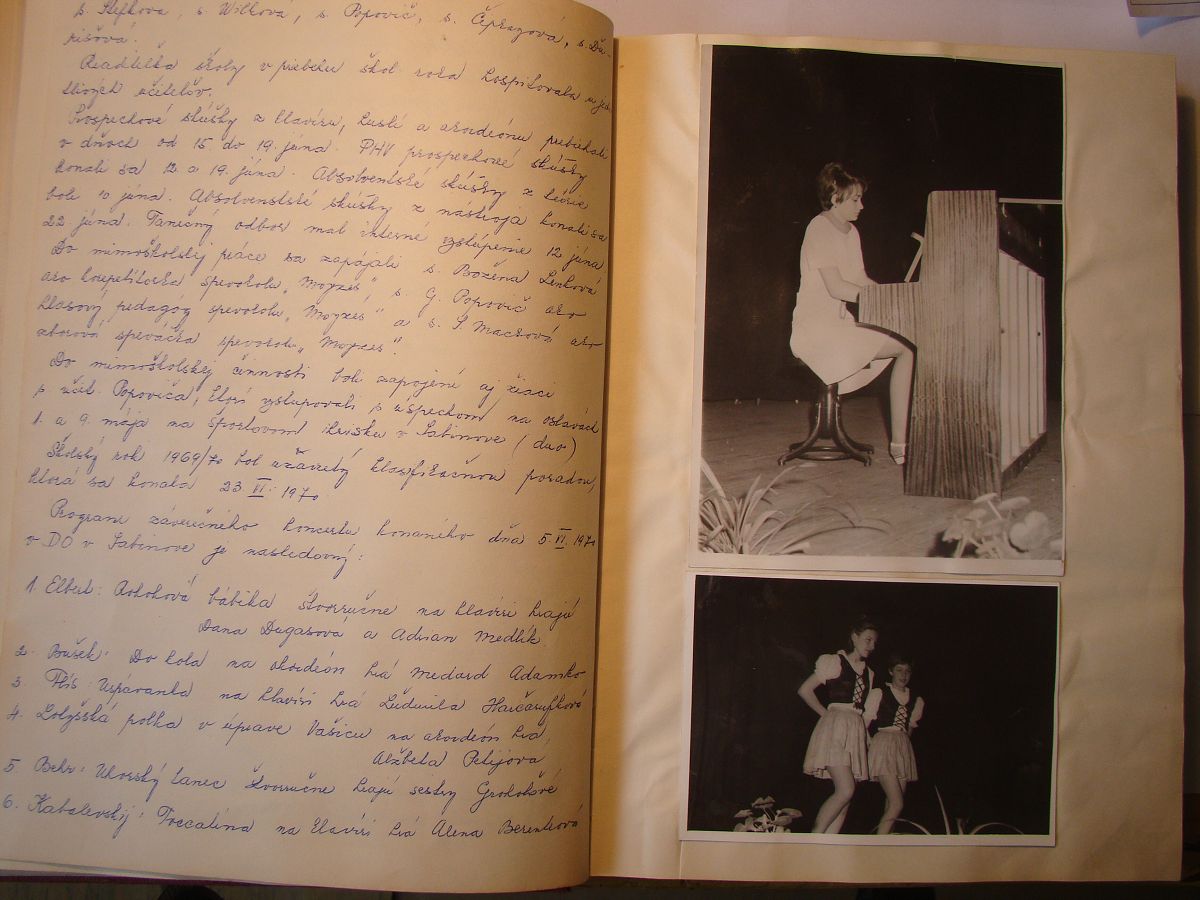 s. Štefková, s. Wilková, s. Popovič, s. Čeprazová, s. Du-
rišová.
Riaditeľka školy v priebehu škol. roka hospitovala u jed-
tlivých učiteľov.
Prospechové skúšky z klavíru, huslí a akordeónu prebiehali
v dňoch od 15. do 19. júna. PHV prospechové skúšky
konali sa 12. a 19. júna. Absolventské skúšky z teórie
boli 10 júna. Absolventské skúšky z nástroja konali sa
22 júna. Tanečný odbor mal interné vystúpenie 12 júna
Do mimoškolskej práce sa zapájali s. Božena Lenková
ako korepetítorka spevokolu „Moyzes", s. G. Popovič ako
hlasový pedagóg spevokolu „Moyzes" a s. Macková ako
zborová speváčka spevokolu „Moyzes".
Do mimoškolskej činnosti boli zapojené aj žiaci
s. učit. Popoviča, ktorí vystupovali s úspechom na oslavách
1. a 9. mája na športovom ihrisku v Sabinove (duo)
Školský rok 1969/70 bol uzavretý klasifikačnou poradou,
ktorá sa konala 23. VI. 1970
Program záverečného koncertu konaného dňa 5. VI. 1970
v DO v Sabinove je nasledovný:
1. Elbert: Rokoková bábika štvorručne na klavíri hrajú
Dana Dugasová a Adrian Medlík
2. Bušek: Do kola na akordeón hrá Medard Adamko
3. Flís: Uspávanka na klavíri hrá Ľudmila
4. Lotyšská polka v úprave Vašicu na akordeón hrá,
Alžbeta Petijova
5. Behr: Uhorský tanec štvorručne hrajú sestry Grohoľové
6. Kabalevskij: Toccatina na klavíri hrá Alena Berentková